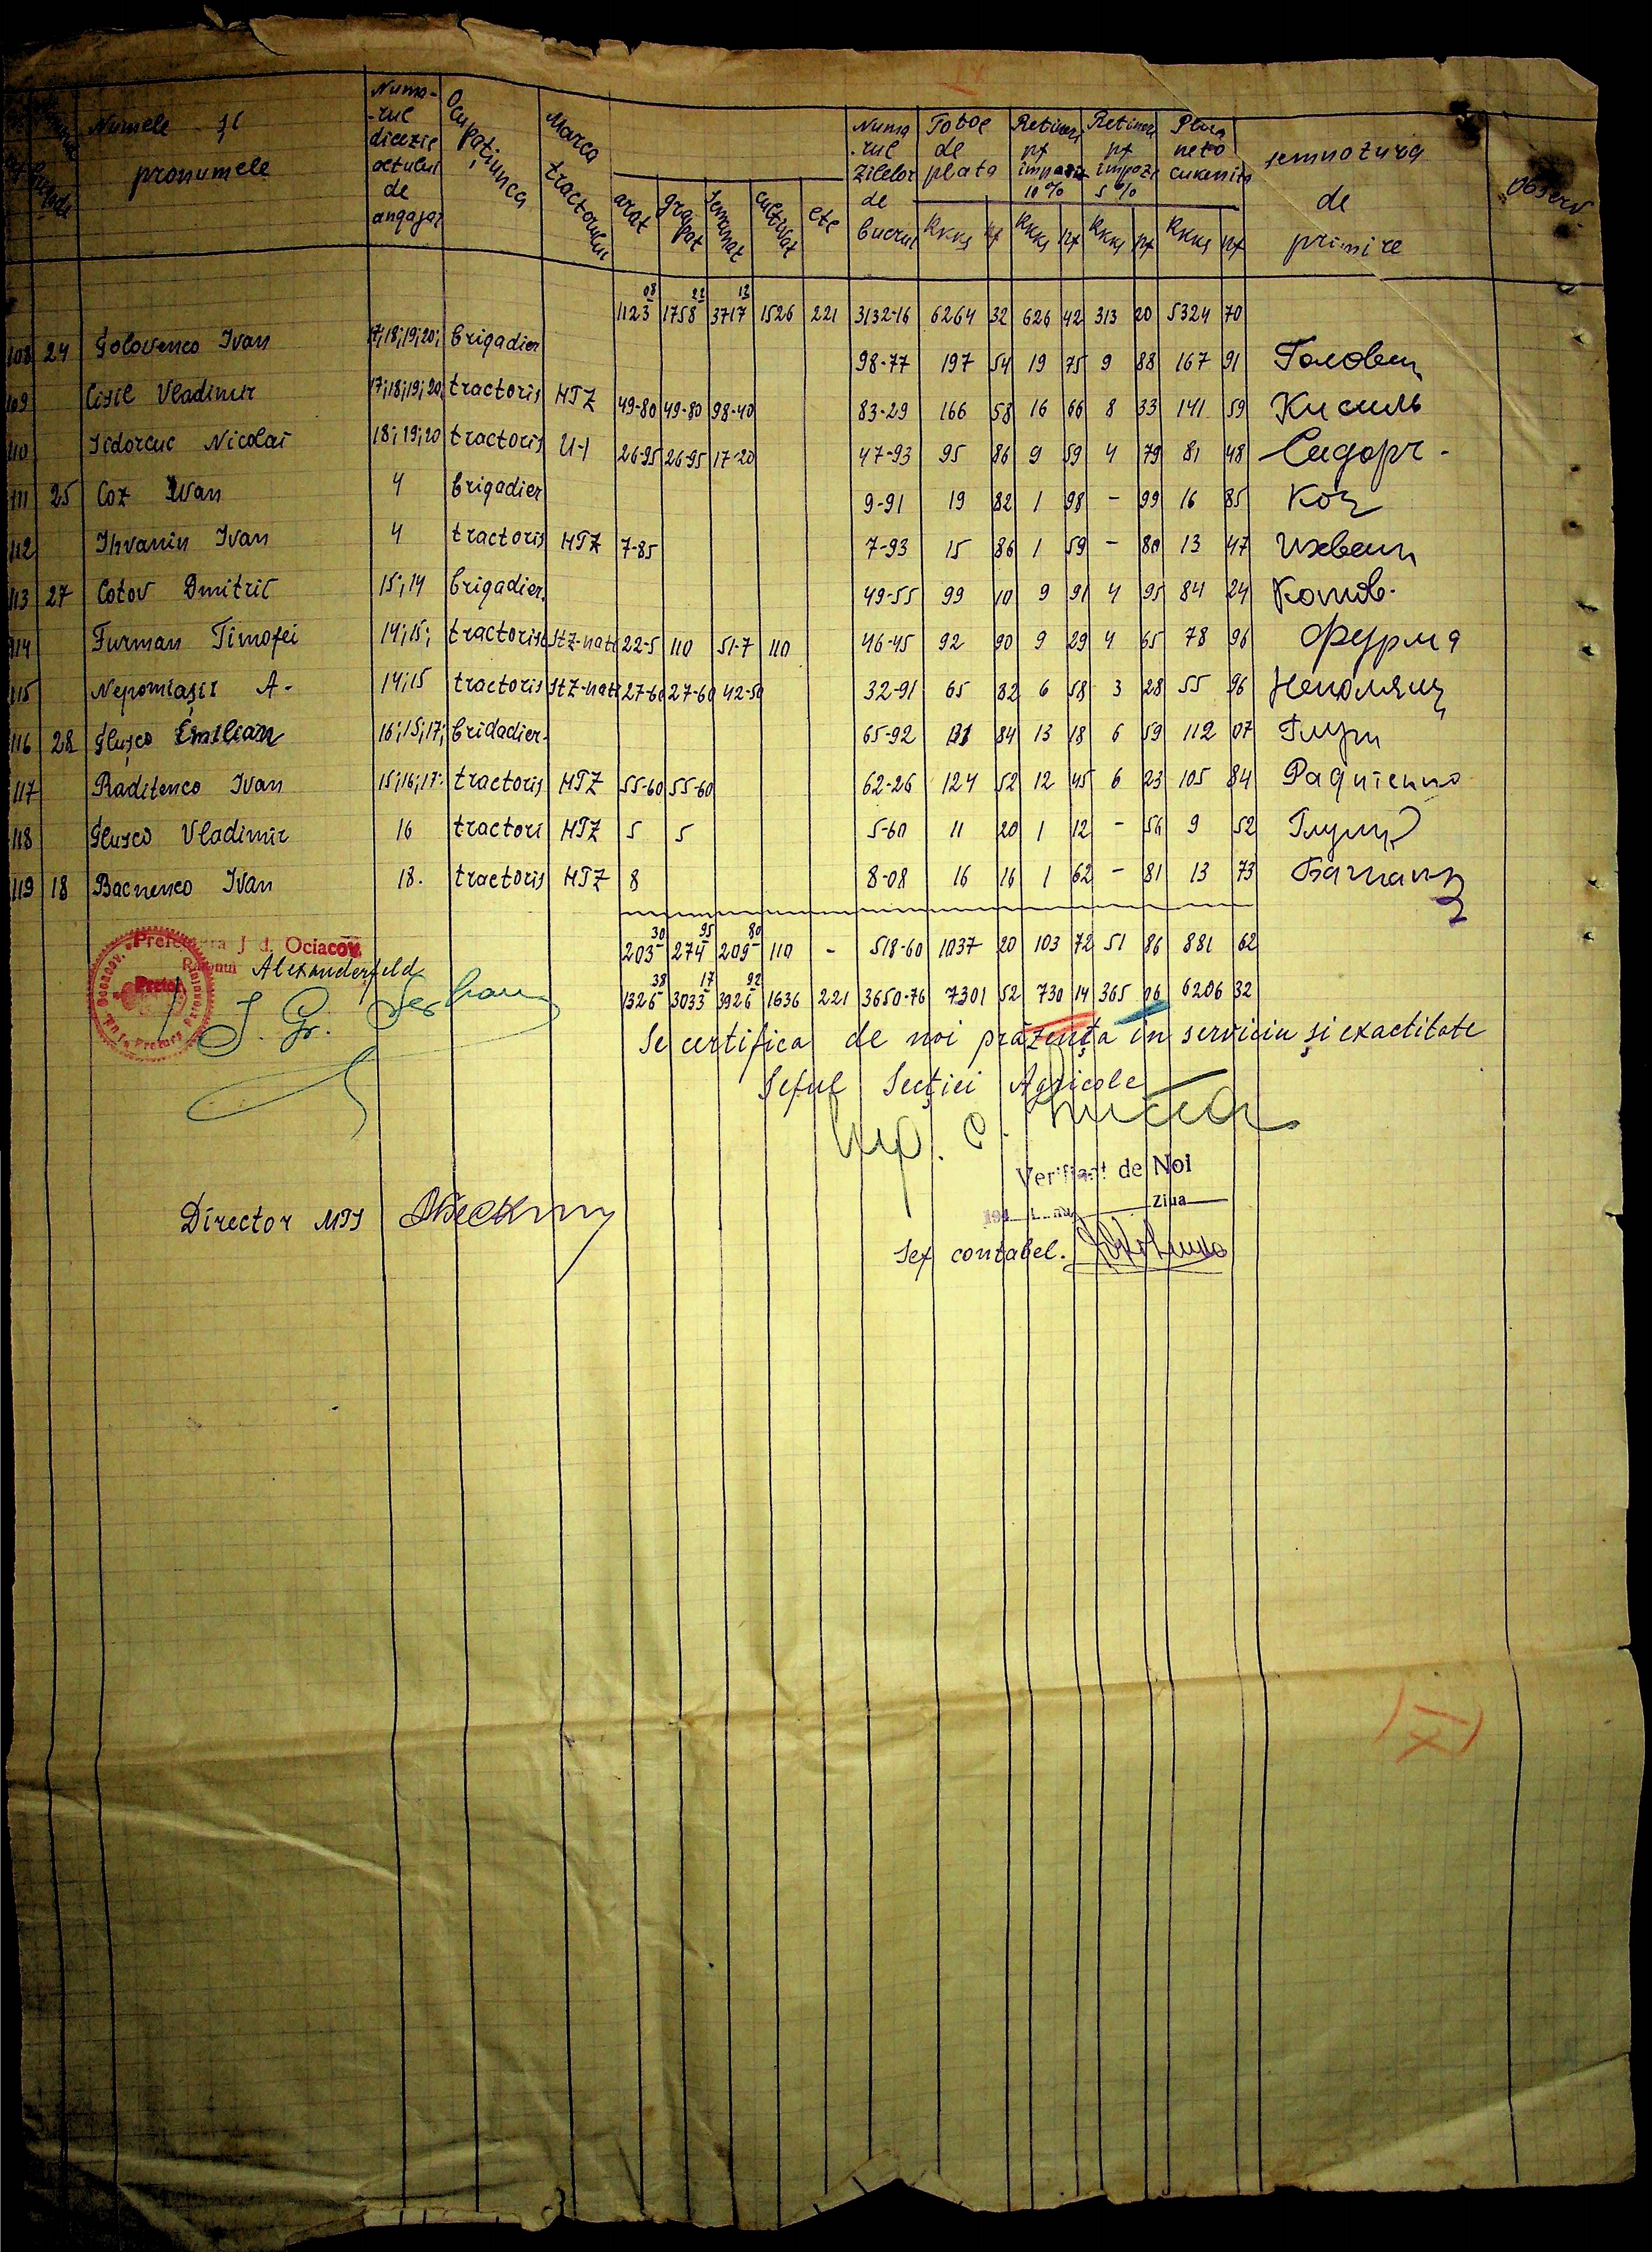 Numele și pronumele
Numa-rul dicezie actului de angajar
Ocupațiunea
Marca tractorului
arat grapat semanat cultivat etc
Numa.rul zilelor de lucrul
Totoe de plata RKKS pf
Retineri pf impozit 10% RKKS pf
Retineri pf impozi 5% RKKS pf
Plata neto RKKS pf
semnotura de primire
observ.
1123 08 1758 22 3717 12 1526 221 3132-16 6264 32 626 42 313 20 5324 70
108 24 Golovenco Ivan 17;18;19;20; brigadier 98-77 197 54 19 75 9 88 167 91 Головен
109 Cisil Vladimir 17;18;19;20; tractoris HTZ 49-80 49-80 98-40 83-29 166 58 16 66 8 33 141 59 Кисиль
110 Sidorcuc Nicolai 18;19;20 tractoris U-1 26-95 26-95 17-20 47-93 95 86 9 59 4 79 81 48 Сидорч-
111 25 Coz Ivan 4 brigadier 9-91 19 82 1 98 - 99 16 85 Коц
112 Ihvanin Ivan 4 tractoris HTZ 7-85 7-93 15 86 1 59 - 80 13 47
113 27 Cotov Dmitric 15;14 brigadier. 49-55 99 10 9 91 4 95 84 24 Котов.
114 Furman Timofei 14;15; tractoris StZ-nati 22-5 110 51-7 110 46-45 92 90 9 29 4 65 78 96 Фурма
115 Nepomiașii A- 14;15 tractoris StZ-nati 27-60 27-60 42-50 32-91 65 82 6 58 3 28 55 96 Непомящ
116 28 Glușco Emilian 16;15;17; bridadier- 65-92 131 84 13 18 6 59 112 07 Глущ
117 Raditenco Ivan 15;16;17; tractoris HTZ 55-60 55-60 62-26 124 52 12 45 6 23 105 84 Радитенко
118 Glusco Vladimir 16 tractori HTZ 5 5 5-60 11 20 1 12 - 56 9 52 Глущ
119 18 Bacnenco Ivan 18. tractoris HTZ 8 8-08 16 16 1 62 - 81 13 73
203 30 274 95 209 80 110 - 518-60 1037 20 103 72 51 86 881 62
Prefectura Jud. Ociacov
Raionul Alexanderfeld
Pretor
1326 38 3033 17 3926 92 1636 221 3650-76 7301 52 730 14 365 06 6206 32
Se certifica de noi präzența in serviciu și exactitate
Seful Secției Agricole
Verificat de Noi
194 Luna Ziua
Director MTS
Sef contabel.